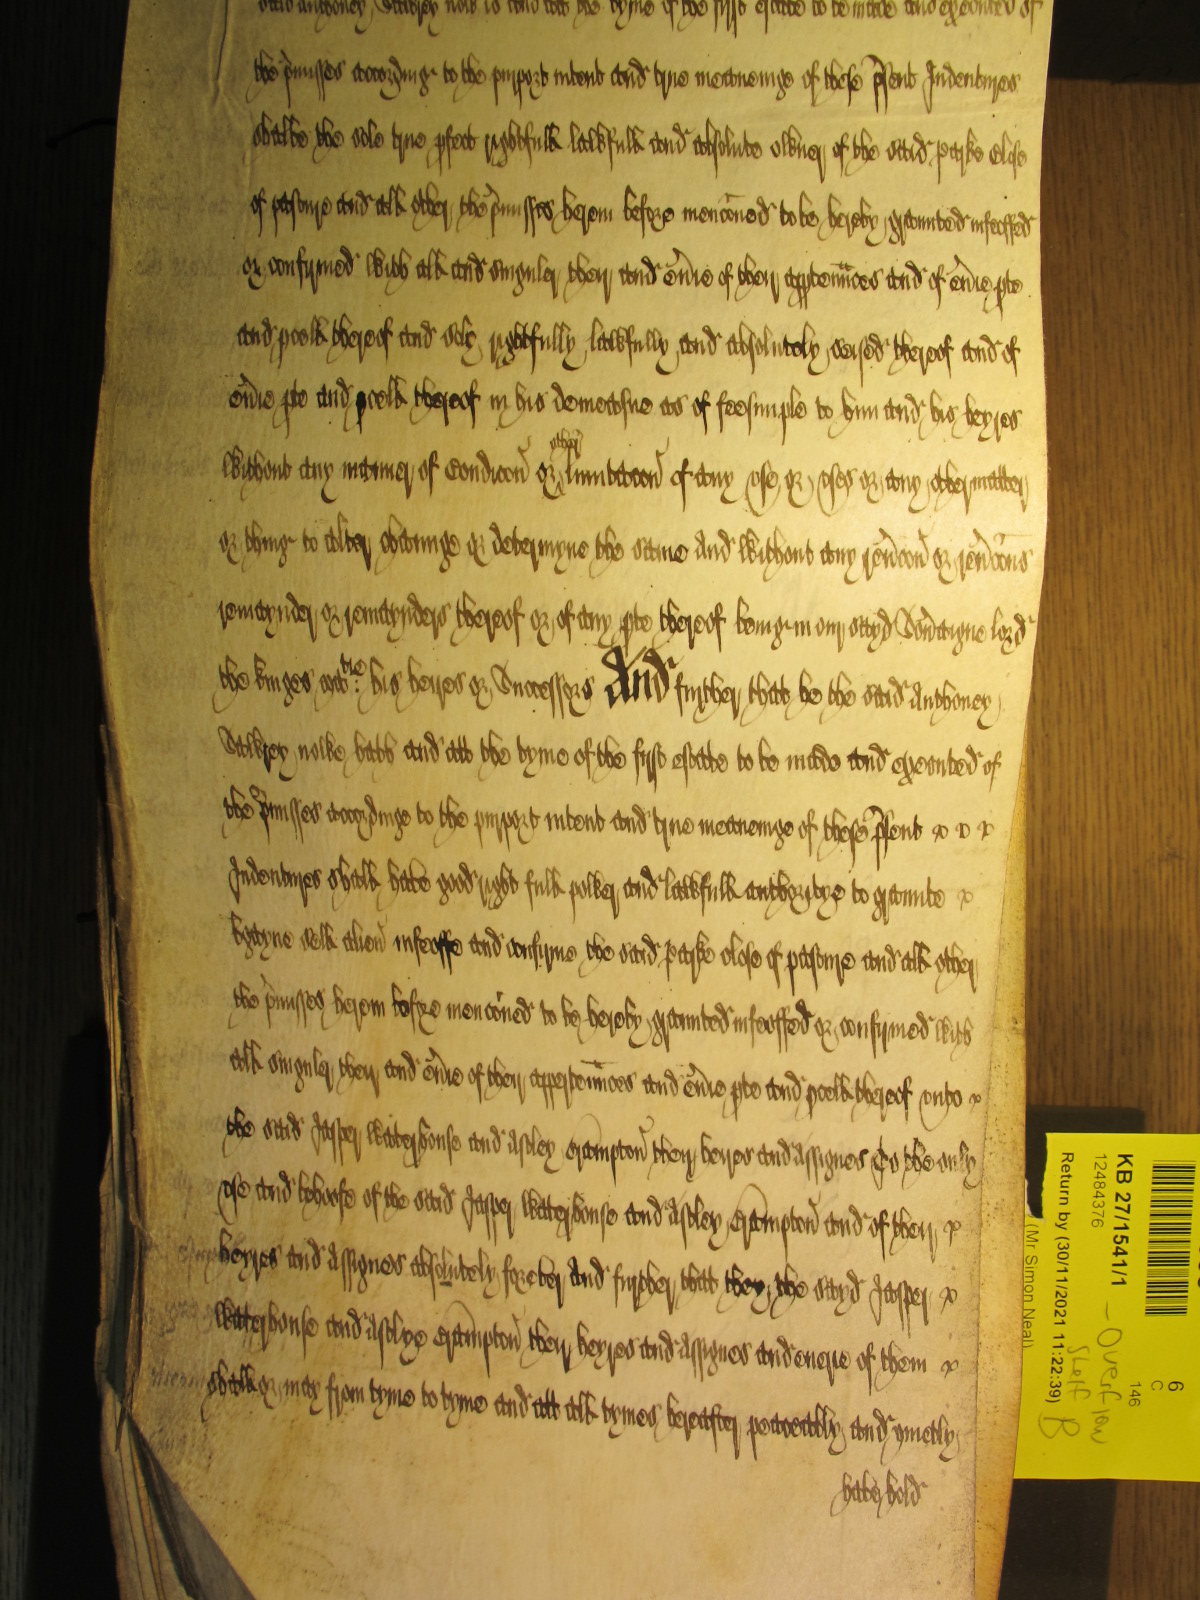 said Anthoney Walkley now is and att the tyme of the first estate to be made and executed of
the p̃misses accordinge to the purport intent and true meaneinge of these p̃sent Indentures
shalbe the sole true pfect rightfull lawfull and absolute owner of the said parke close
of pasture and all other the p̃misses herein before menc̃oned to be hereby graunted infeoffed
or confirmed with all and singuler their and eṽie of their apptenñces and of eṽie pte
and pcell thereof and sole rightfully lawfully and absolutely seised thereof and of
eṽie pte and pcell thereof in his demeasne as of feesimple to him and his heyres
without any manner of Condic̃on or other limitac̃on of any use or uses or any other matter
or thinge to alter chaunge or determyne the same And without any reṽc̃on or reṽc̃ons
remaynder or remaynders thereof or of any pte thereof being in our sayd Soṽaigne lord
the kinges matie his heires or Successors And further that he the said Anthoney
nowe hath and att the tyme of the first estate to be made and executed of
the p̃misses accordinge to the purport intent and true meaneinge of these p̃sent x x x
Indentures shall have good right full power and lawfull authoritye to graunte x
bgayne sell alien infeoffe and confirme the said parke close of pasture and all other
the p̃misses herein before menc̃oned to be hereby graunted infeoffed or confirmed with
all singuler their and eṽie of their appertenñces and eṽie pte and pcell thereof unto x
the said Jasper Waterhouse and Astley Crampton their heires and assignes To the only
use and behoofe of the said Jasper Waterhouse and Astley Crampton and of their x
heyres and assignes absolutely forever And further that they the sayd Jasper x
Waterhouse and Astlye Crampton their heyres and assignes and everie of them x
shall or may from tyme to tyme and att all tymes hereafter peaceably and quietly
have hold
6
C
146
KB 27/1541/1
12484376
Return by (30/11/2021 11:22:39)
(Mr Simon Neal)
- Overflow
Shelf B